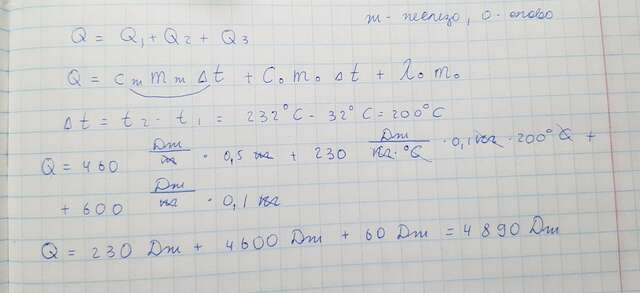 m - железо, о - олово
Q = Q₁ + Q₂ + Q₃
Q = c m m m Δt + C₀ m₀ Δt + λ₀ m₀
Δt = t₂ - t₁ = 232°C - 32°C = 200°C
Q = 460 Dm/кг · 0,5 кг + 230 Dm/кг·°C · 0,1 кг · 200°C +
+ 600 Dm/кг · 0,1 кг
Q = 230 Dm + 4600 Dm + 60 Dm = 4890 Dm